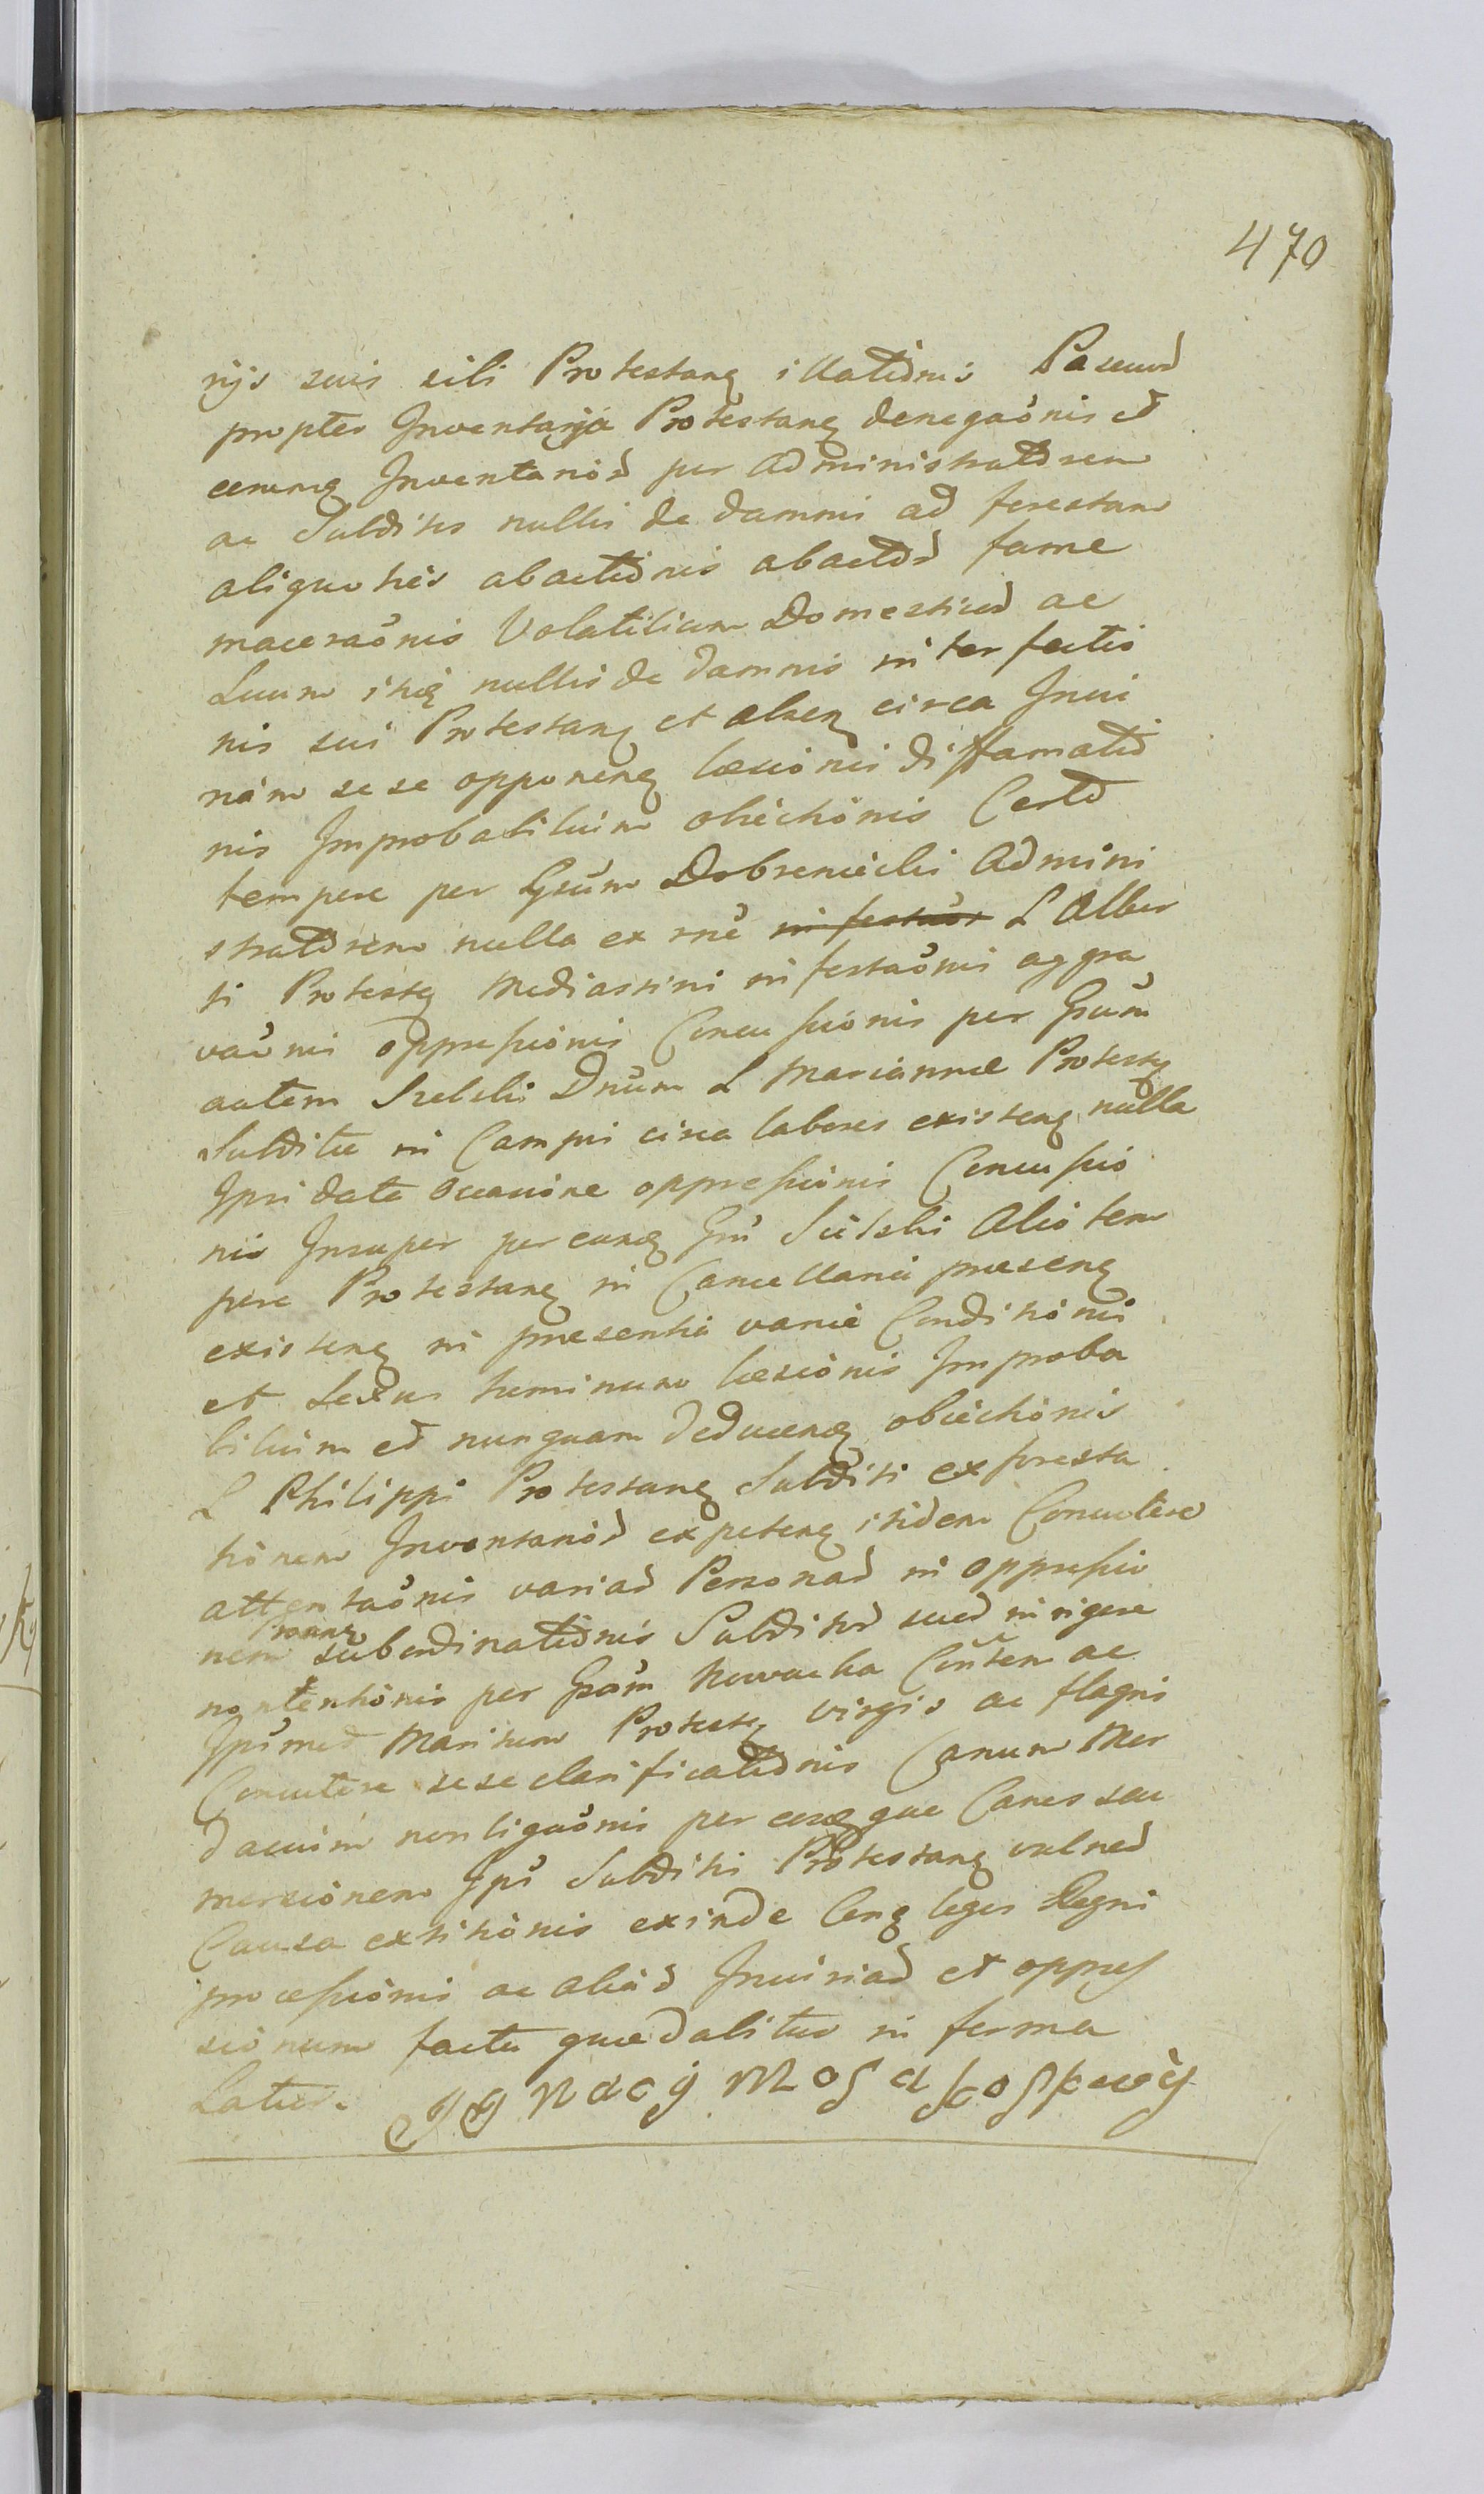 470
nijs suis sibi Protestanq illationis Pascuor
propter Inventarja Protestanq denegaonis et
eorunq Inventarior per Administratorem
ac Subditos nullis de damni ad forestam
aliquoties abactionis abactor fame
maceraonis Volatilium Domesticor ac
Suum itiq nullis de damnis interfectio
nis sui Protestanq et alsenq circa Inui
riam sese opponenq læsionis diffamatio
nis Improbabilium obiectionis Certo
tempore per Gsum Dobreniecki Admini
stratorem nulla ex rne infestaor L Alber
ti Protestq Mediastini infestaonis aggra
vaonis oppressionis Concussionis per Gsum
autem Sielski Dnum L Mariannæ Protestq
Subditæ in Campis circa labores existenq nulla
Ipsi data occasione oppressionis Concussio
nis Insuper per eunq Gsu Sielski Alio tem
pore Protestanq in Cancellaria præsenq
existenq in præsentia variæ Conditionis
et Sexus hominum læsionis Improba
bilium et nunquam deducenq obiectionis
L Philippi Protestanq Subditi ex foresta
tionem Inventarior expetenq itidem Concutere
attentaonis variar Personar in oppressio
nem Protanq subordinationis Subditor suor in rigore
nontentionis per Gsam Nowacka Consem ac
Ipsumet Maritum Protestq virgis ac flagris
Concutere sese clarificationis Canum Mor
dacium non ligaonis per eosque Canes seu
morsionem Ipsi Subditi Protestanq vulner
Causa extitionis exinde Conq leges Regni
processionis ac aliar Iniuriar et oppres
sionum facta quæ dabitur in forma
Latior. Jgnacy Mosakoskwÿ